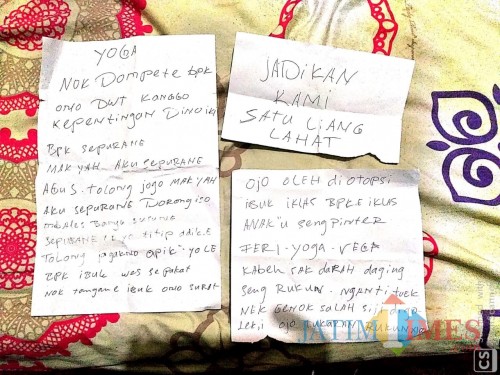 YOGA
NOK DOMPETE BPK
ONO DWT KANGGO
KEPENTINGAN DINOIKI
BPK SEPURANE
MAK YAH AKU SEPURANE
AGUS. TOLONG JOGO MAK YAH
AKU SEPURANE DORONG ISO
titip ADIKE
TOLONG JAGAKNO APIK" YO LE
BPK IBUK WES SEPAKAT
NOK TANGANE IBUK ONO SURAT
JADIKAN
KAMI
SATU LIANG
LAHAT
OJO OLEH DIOTOPSI
IBUK IKLAS BPKE IKLAS
ANAK"U SENG PINTER
FERI - YOGA - VEGA
KABEH SAK DARAH DAGING
SENG RUKUN. NGANTI TUEK
NEK GENOK SALAH SIJI
OJO TUKARAN RUKUN
JATIMTIMES
CS